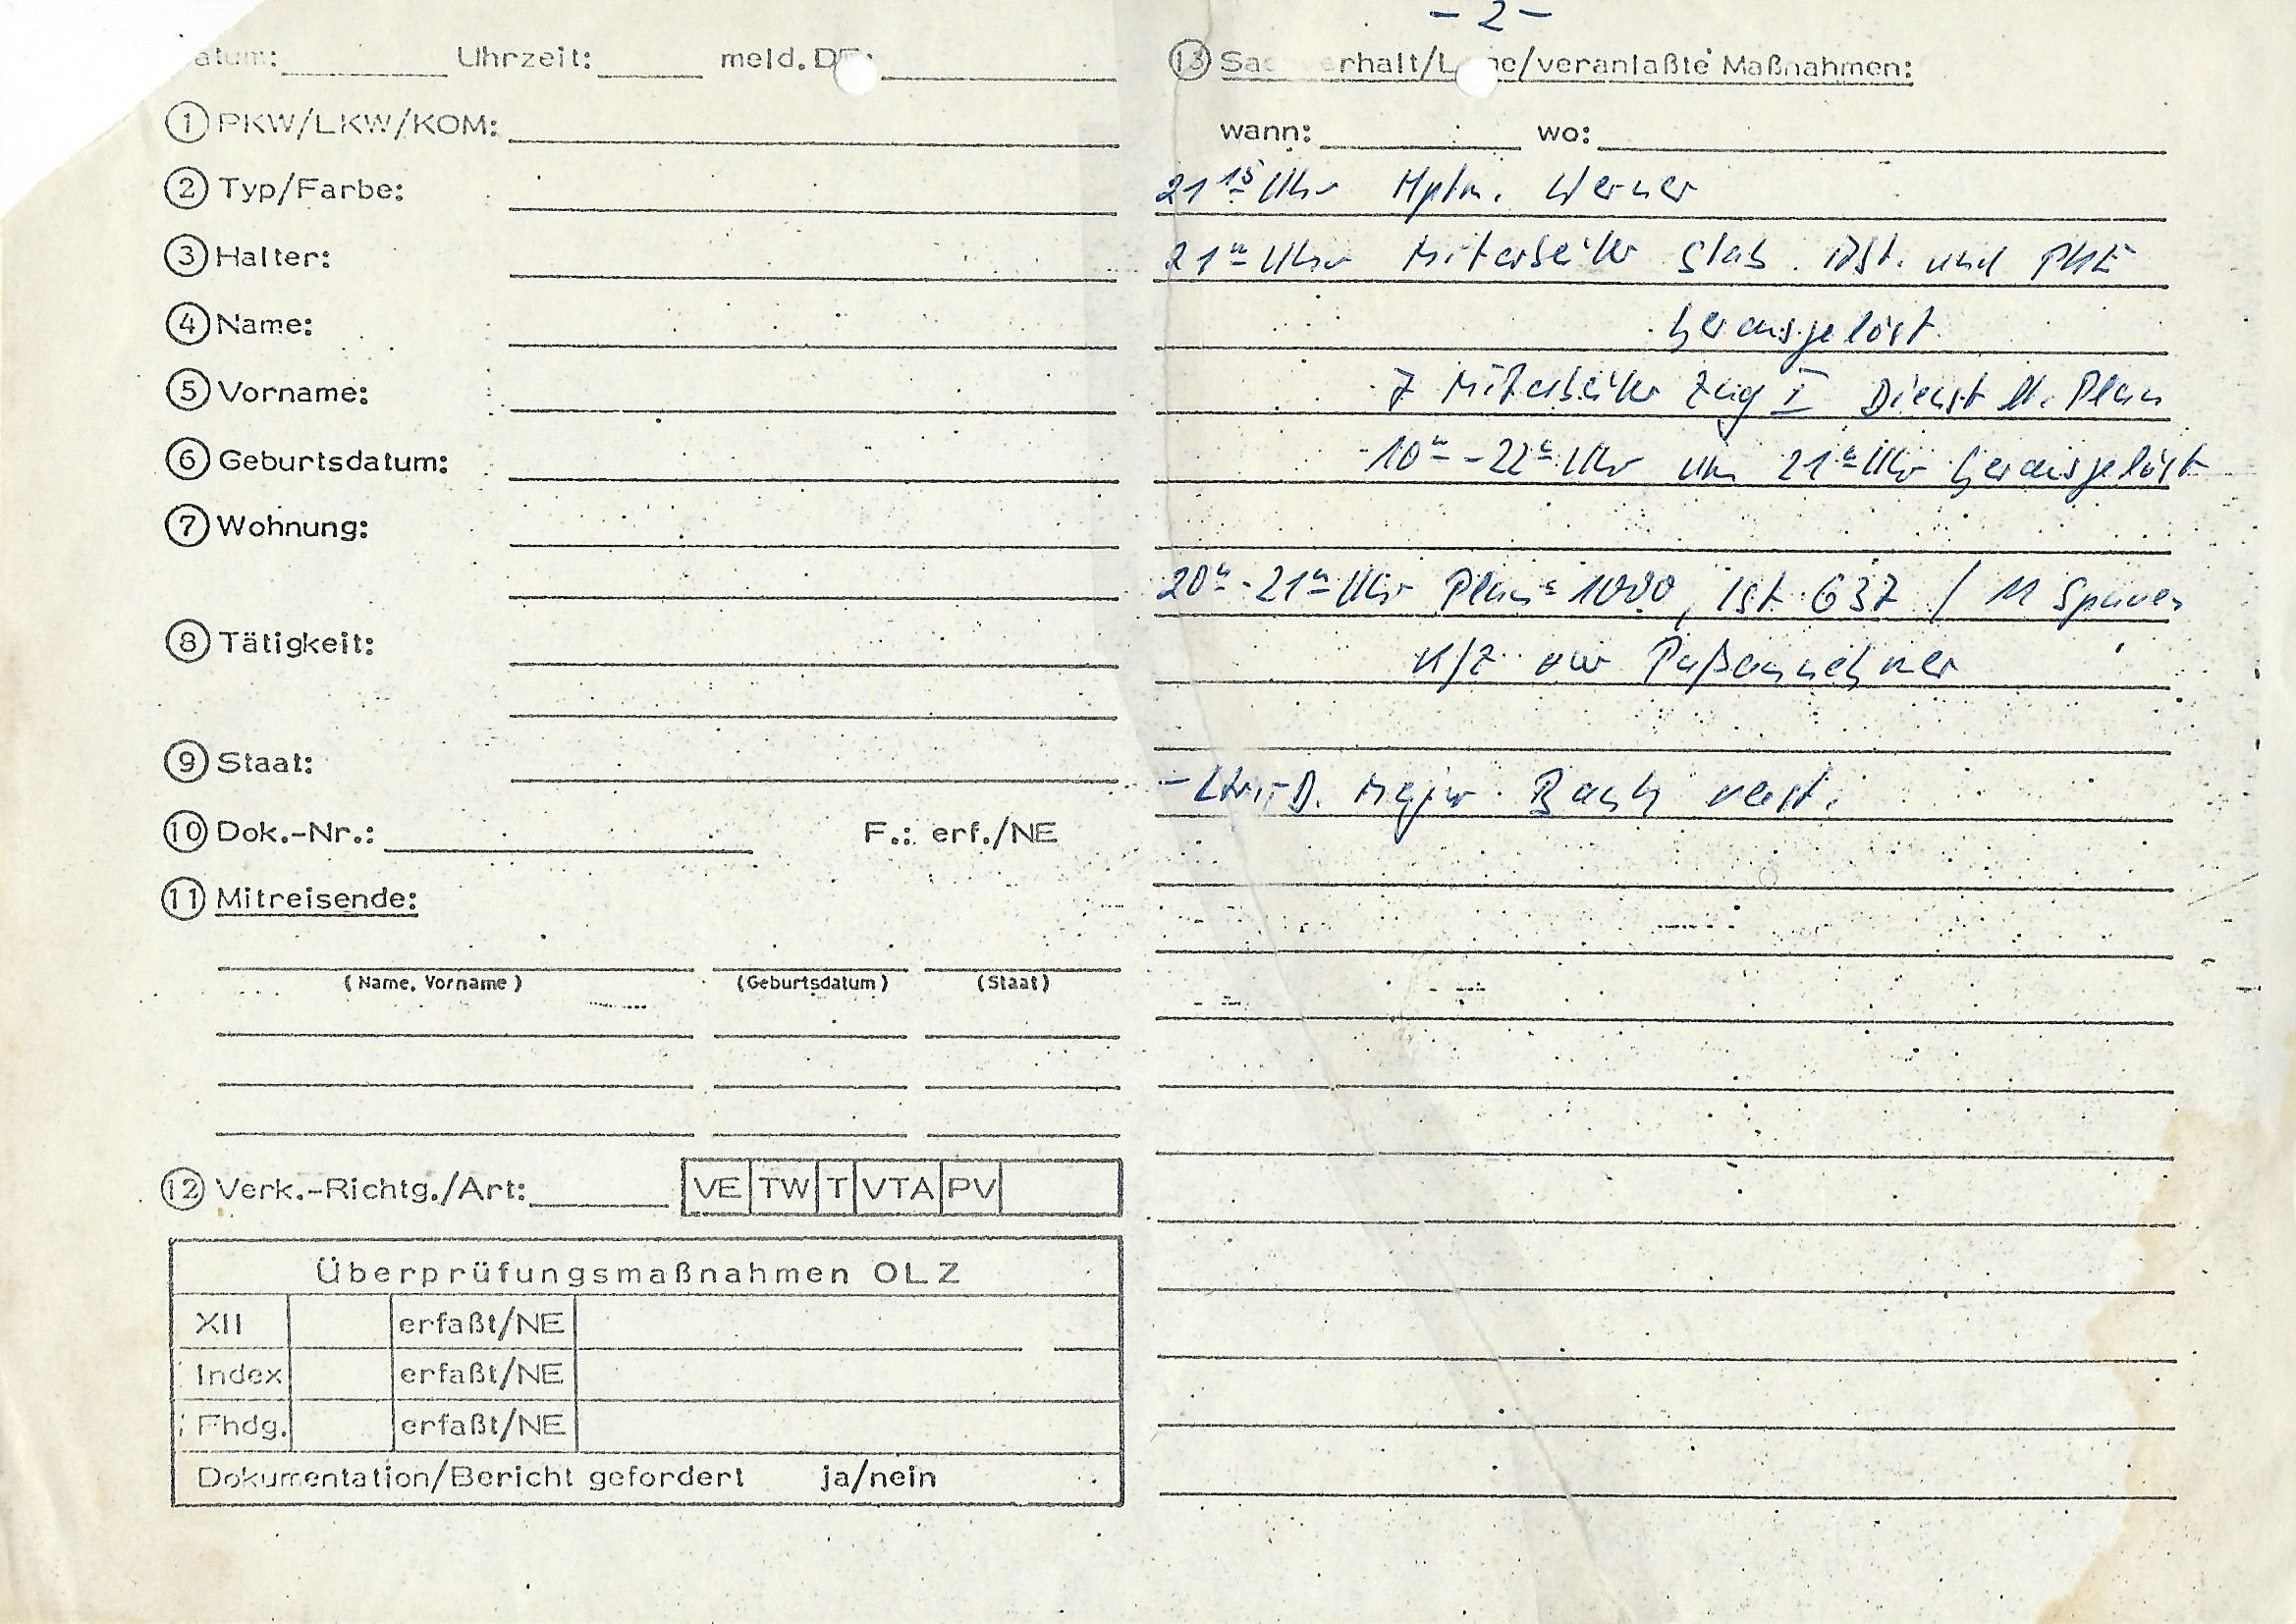 - 2 -
atum: Uhrzeit: meld. D
① PKW/LKW/KOM:
② Typ/Farbe:
③ Halter:
④ Name:
⑤ Vorname:
⑥ Geburtsdatum:
⑦ Wohnung:
⑧ Tätigkeit:
⑨ Staat:
⑩ Dok.-Nr.: F.: erf./NE
⑪ Mitreisende:
(Name, Vorname) (Geburtsdatum) (Staat)
⑫ Verk.-Richtg./Art: VE TW T VTA PV
Überprüfungsmaßnahmen OLZ
XII erfaßt/NE
Index erfaßt/NE
Fhdg. erfaßt/NE
Dokumentation/Bericht gefordert ja/nein
⑬ Sac erhalt/L ge/veranlaßte Maßnahmen:
wann: wo:
21 15 Uhr Hptm. Werner
21 Uhr Mitarbeiter Stab und PKE
herausgelöst
7 Mitarbeiter Zug I Dienst lt. Plan
10 - 22 Uhr um 21 Uhr herausgelöst
20 - 21 Uhr Plan = 1080, Ist 637 / 11 Spuren
nur Paßannehmer
- Major Bach verst.